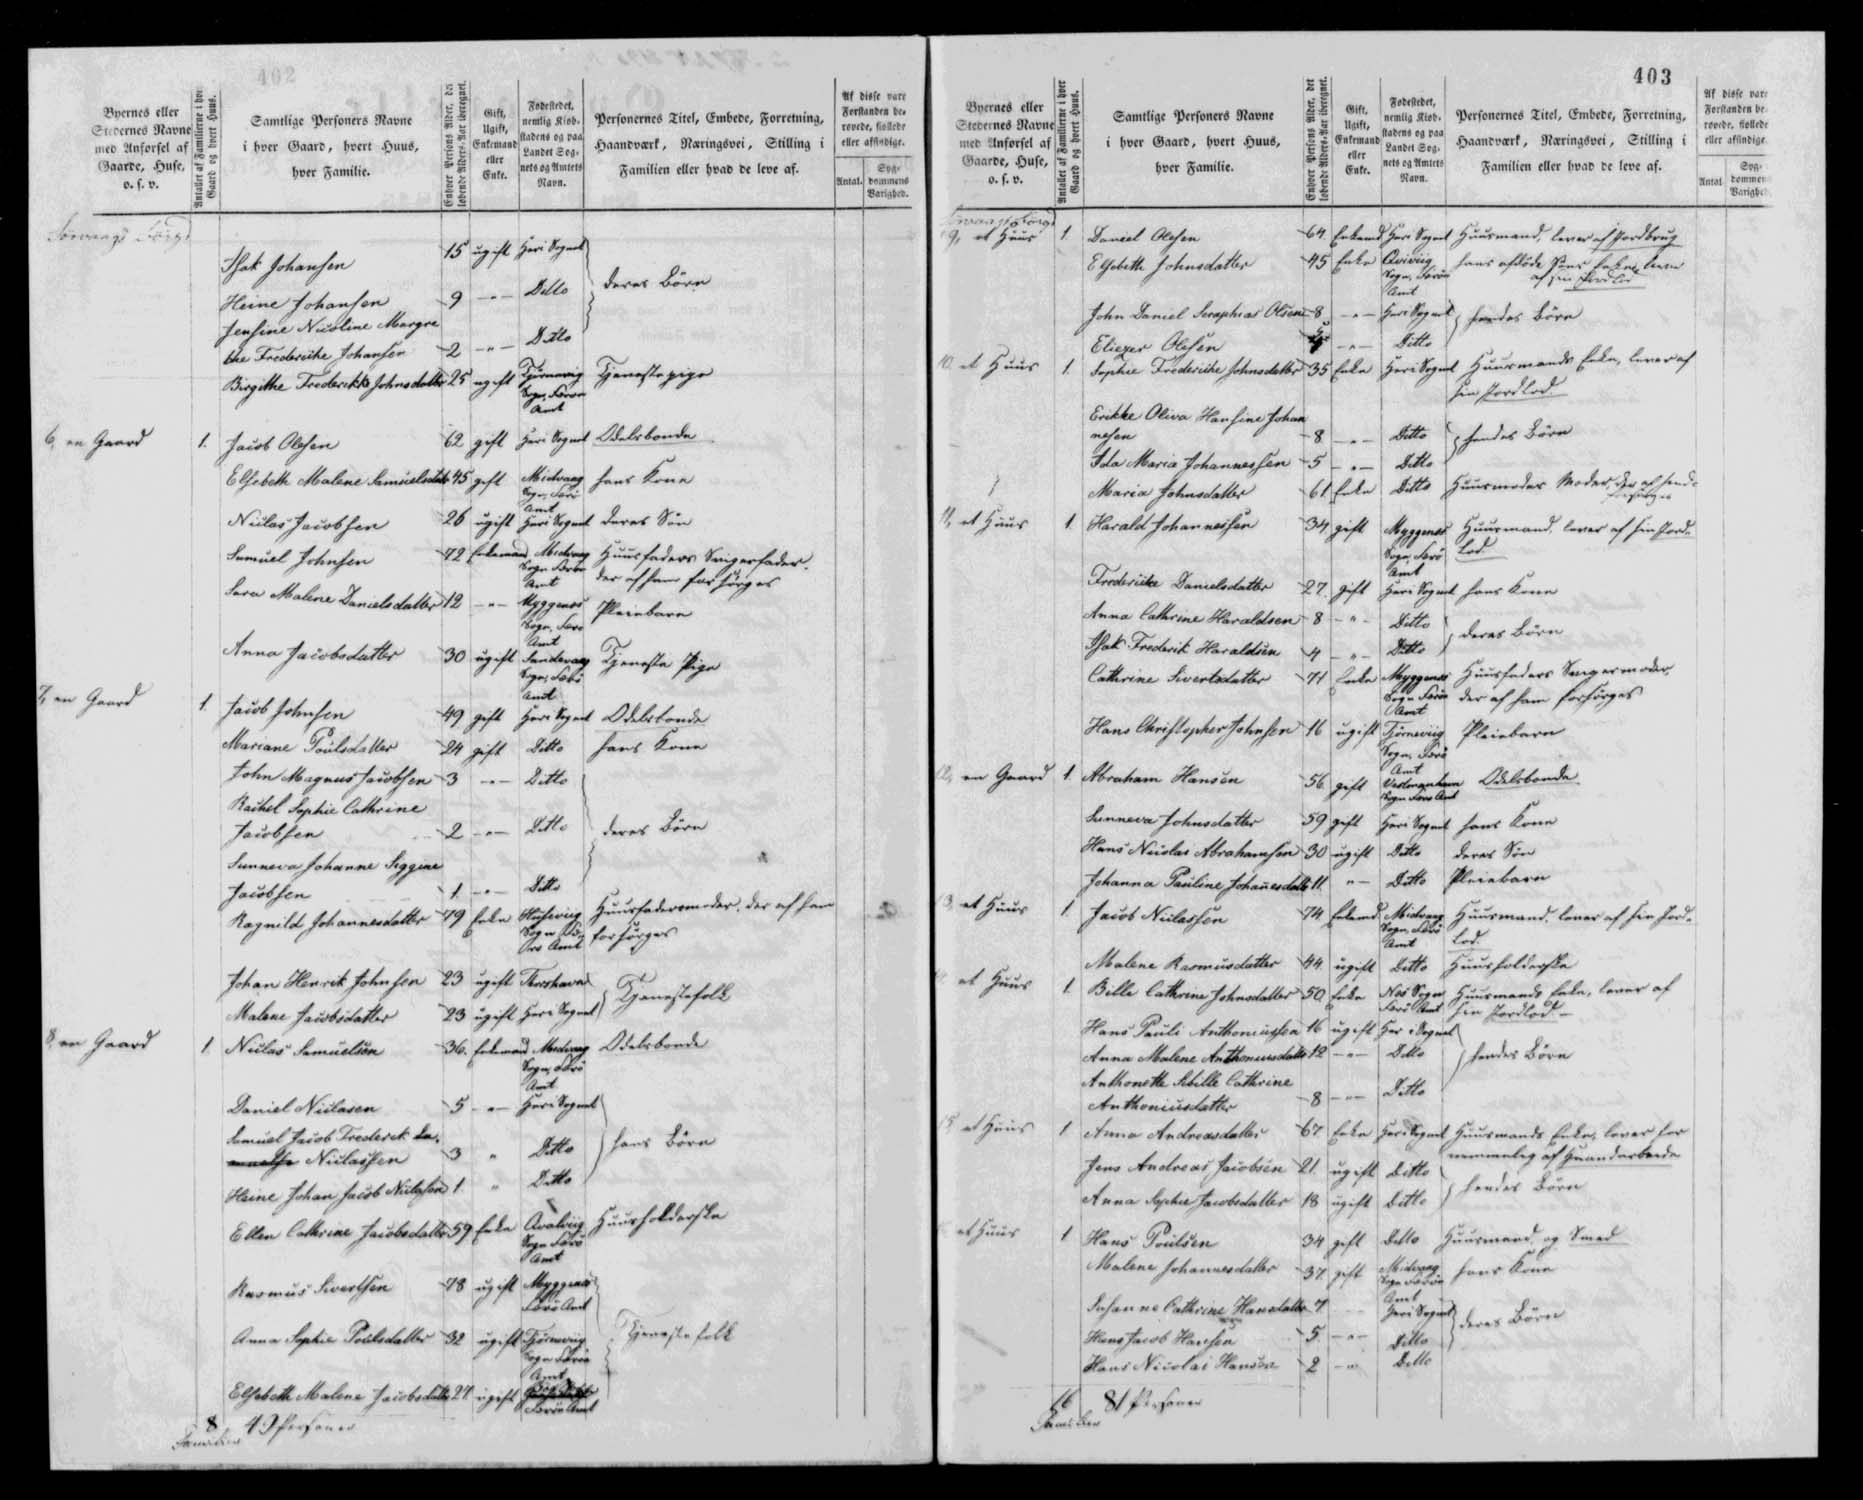 402
Byernes eller
Stedernes Navne
med Anførsel af
Gaarde, Huse,
o. s. v.
Antallet af Familierne i hver
Gaard og hvert Huus.
Samtlige Personers Navne
i hver Gaard, hvert Huus,
hver Familie.
Enhver Persons Alder, det
løbende Alders-Aar iberegnet.
Gift,
Ugift,
Enkemand
eller
Enke.
Fødestedet,
nemlig Kiøb-
stadens og paa
Landet Sog-
nets og Amtets
Navn.
Personernes Titel, Embede, Forretning,
Haandværk, Næringsvei, Stilling i
Familien eller hvad de leve af.
Af disse vare
Forstanden be-
røvede, fiollede
eller afsindige.
Antal.
Syg-
dommens
Varighed.
Sørvaags Bøigd
Isak Johansen 15 ugift Her i Sognet
Heine Johansen 9 -"- Ditto deres Børn
Jensine Nicoline Margre
the Frederikke Johansen 2 -"- Ditto
Birgithe Frederikke Johnsdatter 25 ugift Tjørnevig Tjenestepige
Sogn, Færø
Amt
6, en Gaard 1. Jacob Olesen 62 gift Her i Sognet Odelsbonde
Elsebeth Malene Samuelsdatt 45 gift Midvaag hans Kone
Sogn, Færø
Amt
Niclas Jacobsen 26 ugift Her i Sognet deres Søn
Samuel Johnsen 72 Enkemand Midvaag Huusfaders Svigerfader,
Sogn Færø der af ham forsørges
Amt
Sara Malene Danielsdatter 12 -"- Myggenæs Pleiebarn
Sogn, Færø
Amt
Anna Jacobsdatter 30 ugift Sandevaag Tjeneste Pige
Sogn, Færø
Amt
7, en Gaard 1. Jacob Johnsen 49 gift Her i Sognet Odelsbonde
Mariane Poulsdatter 24 gift Ditto hans Kone
John Magnus Jacobsen 3 -"- Ditto
Rachel Sophie Cathrine
Jacobsen 2 -"- Ditto deres Børn
Sunneva Johanne Siggine
Jacobsen 1 -"- Ditto
Ragnild Johannesdatter 79 Enke Huusevig Huusfadersmoder, der af ham
Sogn Fær- forsørges
øes Amt
Johan Henrik Johnsen 23 ugift Thorshavn Tjenestefolk
Malene Jacobsdatter 23 ugift Her i Sognet
8, en Gaard 1. Niclas Samuelsen 36. Enkemand Midvaag Odelsbonde
Sogn, Færø
Amt
Daniel Niclasen 5 -"- Her i Sognet
Samuel Jacob Frederik
Niclassen 3 " Ditto hans Børn
Heine Johan Jacob Niclasen 1. " Ditto
Ellen Cathrine Jacobsdatter 59 Enke Qvalviig Huusholderske
Sogn Færø
Amt
Rasmus Sivertsen 78 ugift Myggenæs
Færø Amt
Anna Sophie Poulsdatter 32 ugift Tjørneviig Tjenestefolk
Sogn Færø
Amt
Elsebeth Malene Jacobsdatt 27 ugift
Færø Amt
8 49 Personer
Familier
403
Byernes eller
Stedernes Navne
med Anførsel af
Gaarde, Huse,
o. s. v.
Antallet af Familierne i hver
Gaard og hvert Huus.
Samtlige Personers Navne
i hver Gaard, hvert Huus,
hver Familie.
Enhver Persons Alder, det
løbende Alders-Aar iberegnet.
Gift,
Ugift,
Enkemand
eller
Enke.
Fødestedet,
nemlig Kiøb-
stadens og paa
Landet Sog-
nets og Amtets
Navn.
Personernes Titel, Embede, Forretning,
Haandværk, Næringsvei, Stilling i
Familien eller hvad de leve af.
Af disse vare
Forstanden be-
røvede, fiollede
eller afsindige.
Antal
Syg-
dommens
Varighed.
Sørvaags Bøigd
9, et Huus 1. Daniel Olesen 64. Enkemd Her i Sognet Huusmand, lever af Jordbrug
Elsebeth Johnsdatter 45 Enke Qviviig hans afdøde Søns Enke, lever
Sogn, Færøe af sin Jordlod
Amt
John Daniel Seraphias Olsen 8 -"- Her i Sognet hendes Børn
Eliezer Olesen 5 -"- Ditto
10, et Huus 1. Sophie Frederikke Johnsdatter 35 Enke Her i Sognet Huusmands Enke, lever af
sin Jordlod.
Erikke Oliva Hansine Johan
nesen 8 -"- Ditto hendes Børn
Ida Maria Johannessen 5 -"- Ditto
Maria Johnsdatter 61 Enke Ditto Huusmoders Moder, der af hende
forsørges
11, et Huus 1. Harald Johannessen 34 gift Myggenæs Huusmand, lever af sin Jord-
Sogn, Færø lod
Amt
Frederikke Danielsdatter 27. gift Her i Sognet hans Kone
Anna Cathrine Haraldsen 8 -"- Ditto deres Børn
Isak Frederik Haraldsen 4 -"- Ditto
Cathrine Sivertsdatter 71 Enke Myggenæs Huusfaders Svigermoder,
Sogn Færøe der af ham forsørges
Amt
Hans Christopher Johnsen 16 ugift Tjørneviig Pleiebarn
Sogn, Færø
Amt
12, en Gaard 1. Abraham Hansen 56. gift Vestmanhavn Odelsbonde
Sogn Færø Amt
Sunneva Johnsdatter 59 gift Her i Sognet hans Kone
Hans Nicolai Abrahamsen 30 ugift Ditto deres Søn
Johanna Pauline Johannesdatt 11. "- Ditto Pleiebarn
13, et Huus 1. Jacob Niclassen 74. Enkemd. Midvaag Huusmand, lever af sin Jord-
Sogn, Færø lod.
Amt
Malene Rasmusdatter 44. ugift Ditto Huusholderske
et Huus 1. Bille Cathrine Johnsdatter 50. Enke Nes Sogn Huusmands Enke, lever af
Færø Amt sin Jordlod
Hans Pauli Anthoniussen 16 ugift Her i Sognet
Anna Malene Anthoniusdatt 12 -"- Ditto hendes Børn
Anthonette Sibille Cathrine
Anthoniusdatter 8 -"- Ditto
15 et Huus 1 Anna Andreasdatter 67 Enke Her i Sognet Huusmands Enke, lever for
nemmelig af Haandarbeide
Jens Andreas Jacobsen 21. ugift Ditto hendes Børn
Anna Sophie Jacobsdatter 18 ugift Ditto
et Huus 1 Hans Poulsen 34 gift Ditto Huusmand og Smed
Malene Johannesdatter 37. gift Midvaag hans Kone
Sogn Færøe
Amt
Susanne Cathrine Hansdatter 7. Her i Sognet deres Børn
Hans Jacob Hansen 5 -"- Ditto
Hans Nicolai Hansen 2 -"- Ditto
16 81 Personer
Familier